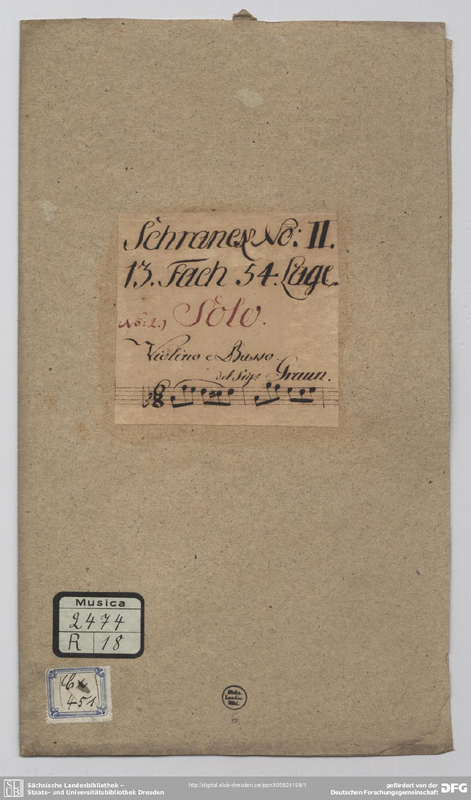 Schranck No: II.
13. Fach 54. Lage.
No: 2.) Solo.
Violino e Basso.
del Sigr Graun.
Musica
2474
R 18
Cx
451
Sächsische Landesbibliothek –
Staats- und Universitätsbibliothek Dresden
http://digital.slub-dresden.de/ppn305824198/1
gefördert von der
Deutschen Forschungsgemeinschaft DFG